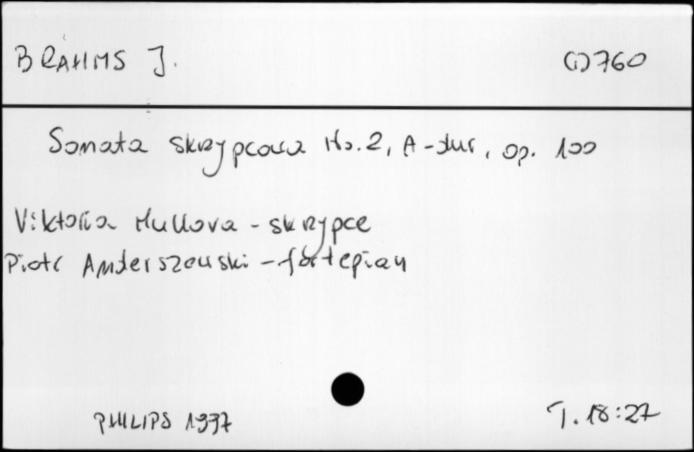 BRAHMS J. CD760
Sonata skrzypcowa No.2, A-dur, op. 100
Viktoria Mullova - skrzypce
Piotr Anderszewski - fortepian
PHILIPS 1997 T. 18:27